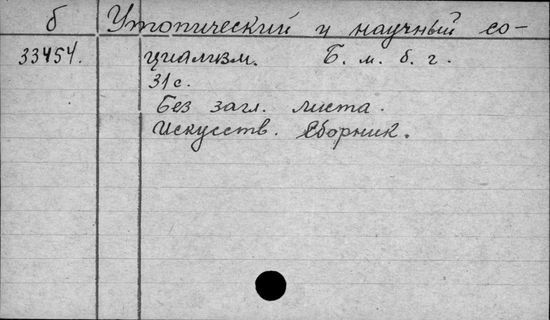 б Утопический и научный со-
33454. циализм. Б. м. б. г.
31 с.
Без загл. листа.
Искусств. сборник.